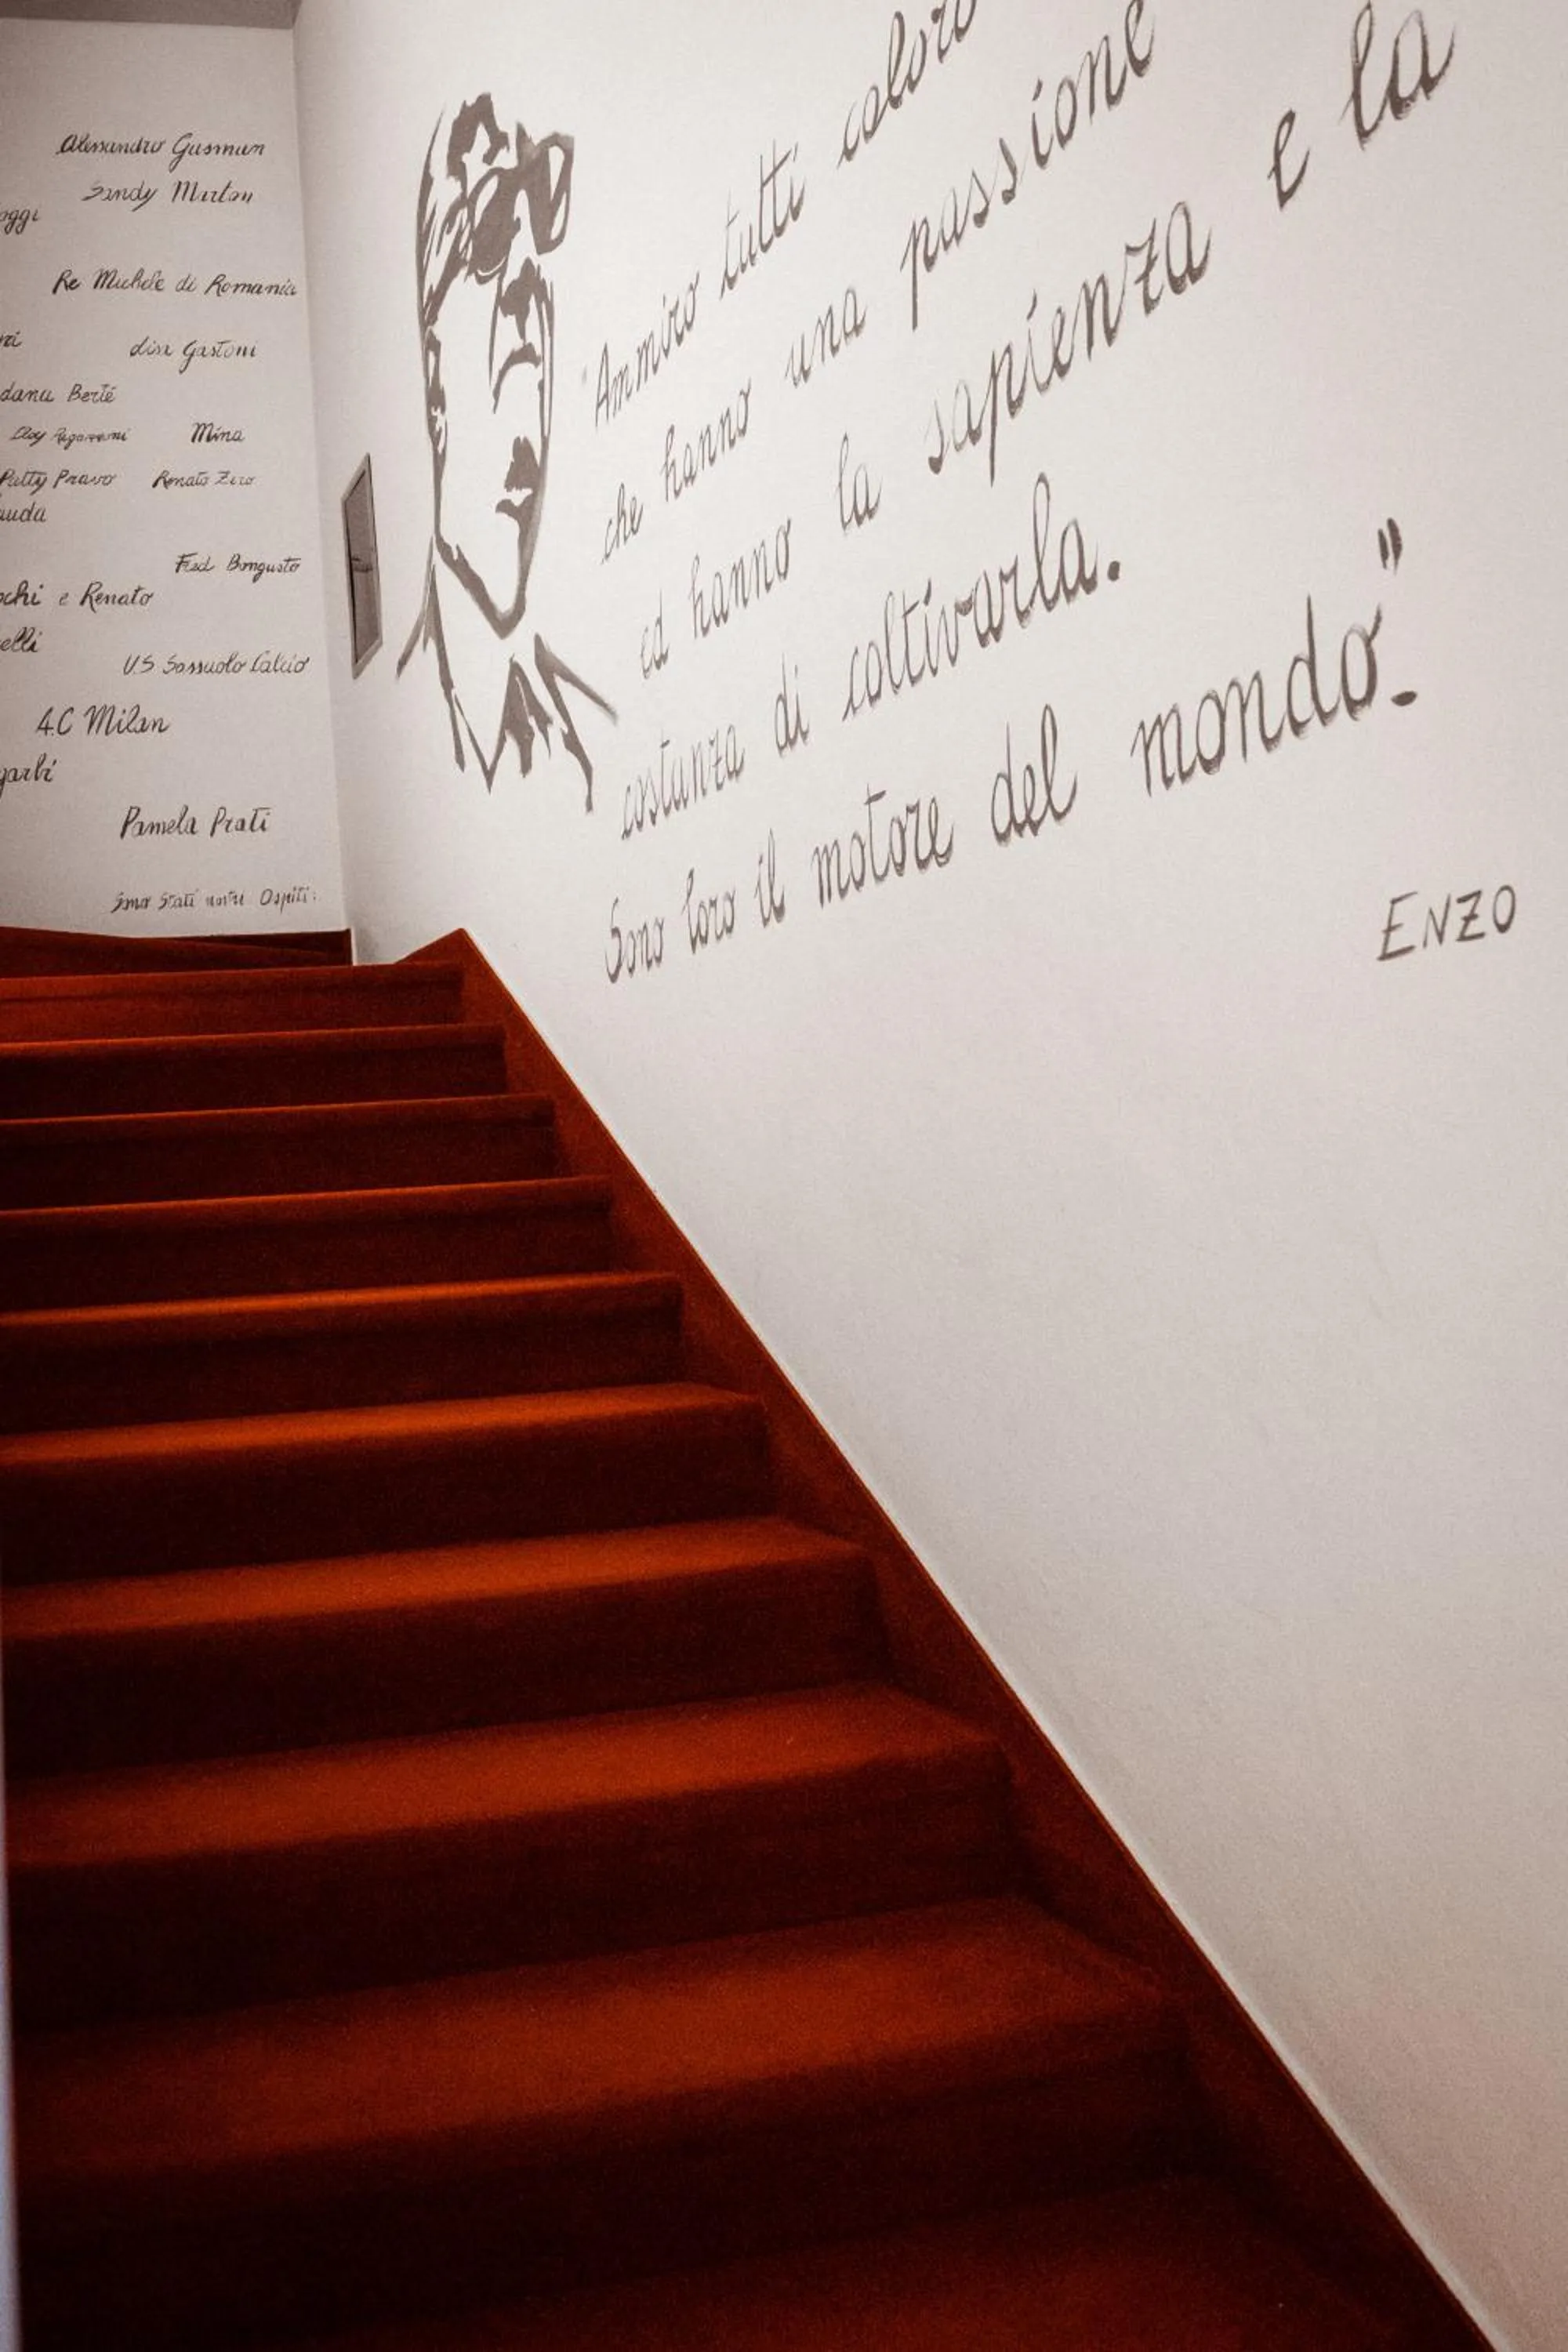 Alessandro Gusman
Sandy Marton
oggi
Re Michele di Romania
ri
Lisa Gastoni
dana Berté
Mina
Patty Pravo Renato Zero
auda
Fred Bongusto
chi e Renato
elli
U.S Sassuolo Calcio
A.C Milan
garbi
Pamela Prati
Sono Stati nostri Ospiti:
"Ammiro tutti coloro
che hanno una passione
ed hanno la sapienza e la
costanza di coltivarla.
Sono loro il motore del mondo."
ENZO